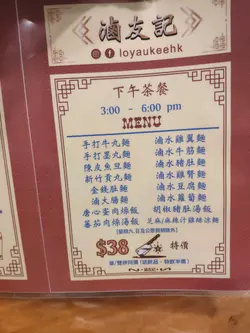 滷友記
loyaukeehk
下午茶餐
3:00 - 6:00 pm
MENU
手打牛丸麵
手打墨丸麵
陳皮魚旦麵
新竹貢丸麵
金錢肚麵
滷大腸麵
唐心蛋肉燥飯
蕃茄肉燥湯飯
滷水雞翼麵
滷水牛筋麵
滷水豬肚麵
滷水雞腎麵
滷水豆腐麵
滷水蘿蔔麵
胡椒豬肚湯飯
芝麻/麻辣汁雞髀涼麵
$38 特價